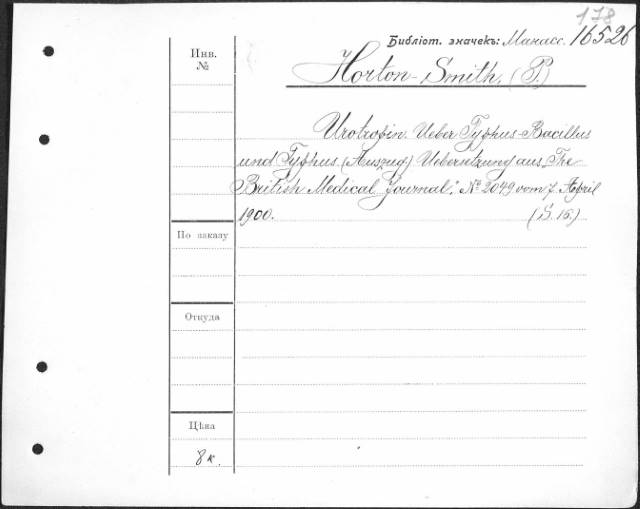 178
Библіот. значекъ: Манасс. 16526
Инв.
№
Horton-Smith, (P.)
Urotropin. Ueber Typhus-Bacillus
und Typhus. (Auszug) Uebersetzung aus „The
British Medical Journal," № 2049 vom 7. April
1900. (S. 16.)
По заказу
Откуда
Цѣна
8 к.